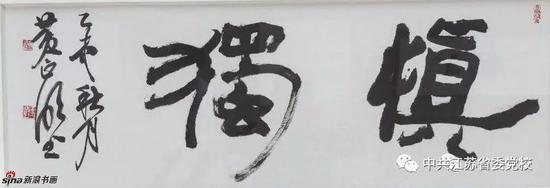 慎獨
乙未秋月
sina 新浪书画
中共江苏省委党校